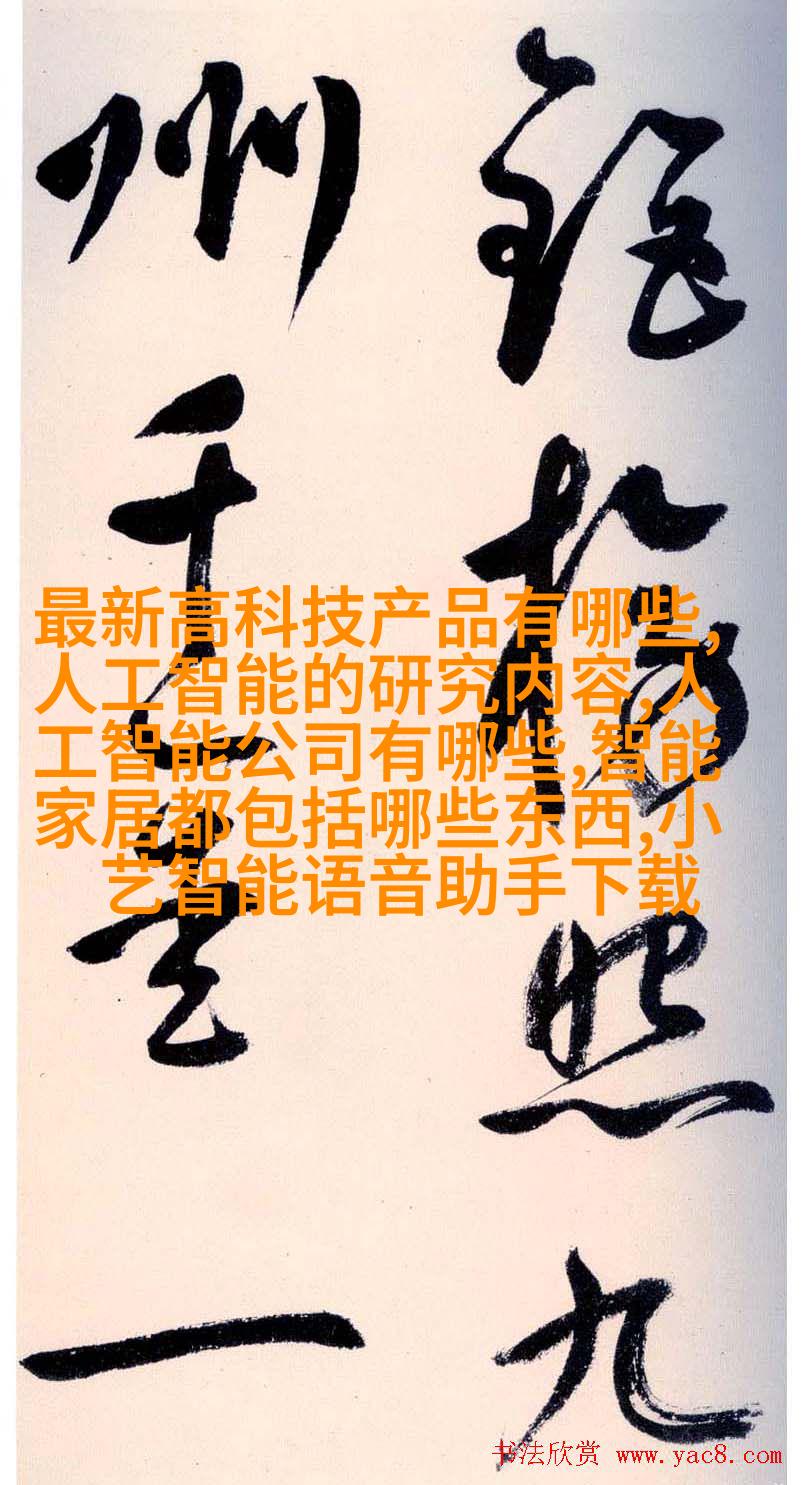 照九
州千
一
最新高科技产品有哪些,
人工智能的研究内容,人
工智能公司有哪些,智能
家居都包括哪些东西,小
艺智能语音助手下载
书法欣赏 www.yac8.com